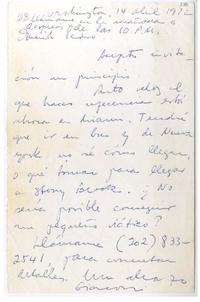 Washington, 14 abril 1972
Llámame en la mañana o
después de las 10 P.M.
Querido Pedro:
Acepto invita-
ción en principio.
Auto
que haces
ahora en Miami. Tendré
que ir en bus y de Nueva
York no sé cómo llegar,
o qué tomar para llegar
a Stony Brook. ¿No
sería posible conseguir
un pequeño viático?
Llámame (202) 833-
2541, para concretar
detalles. Un abrazo